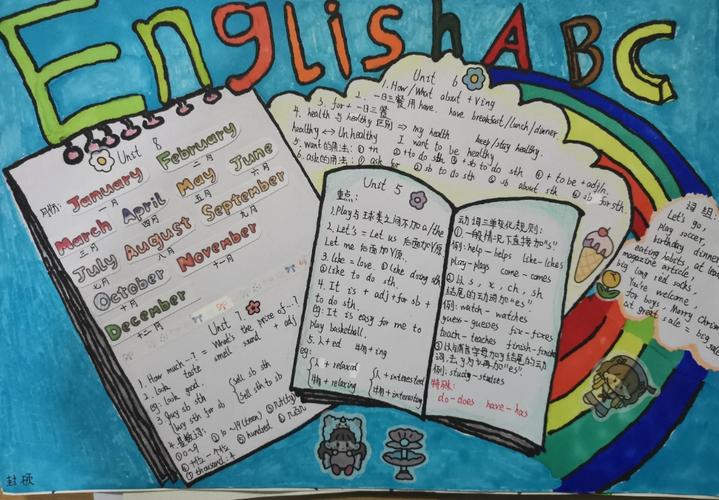 English ABC
Unit 8
月份:
January
一月
February
二月
March
三月
April
四月
May
五月
June
六月
July
七月
August
八月
September
九月
October
十月
November
十一月
December
十二月
Unit 7
1. How much~? = What's the price of~?
2. Look taste smell sound + adj
eg: Look good.
3. buy sb sth
buy sth for sb
sell sb sth
sell sth to sb
4. 基数词:
① 0~9
⑤ hundred
⑦ thousand
Unit 6
1. How/What about +Ving
2. 一日三餐用 have. have breakfast/lunch/dinner
3. for + 一日三餐
4. health 与 healthy 区别 ⇒ my health keep/stay healthy.
healthy ↔ unhealthy I want to be healthy.
5. want的用法: ① +n ② +to do sth ③ +sb to do sth ④ + to be +adj/n.
6. ask的用法: ① ask for ② sb to do sth ③ sb about sth ④ sb for sth.
Unit 5
重点:
1. Play与球类之间不加a/the
2. Let's = Let us 后面加V原
Let me 后面加V原.
3. like = love. ① like doing sth
② like to do sth.
4. It is + adj + for sb +
to do sth.
eg: It is easy for me to
play basketball.
5. 人+ed 物+ing
eg:
人 + relaxed
物 + relaxing
人 + interested
物 + interesting
动词三单变化规则:
① 一般情况下直接加"s"
例: help-helps like-likes
play-plays come-comes
② 以s, x, ch, sh
结尾的动词加"es".
例: watch-watches
guess-guesses fix-fixes
teach-teaches finish-finishes
③ 以辅音字母加y结尾的动
词,去y为i再加"es".
例: study-studies
特殊:
do-does have-has
词组:
Let's go
play soccer,
birthday dinner
eating habits at least
magazine article
big long red socks,
You're welcome,
for boys, Merry Christmas
at great sale = big sale